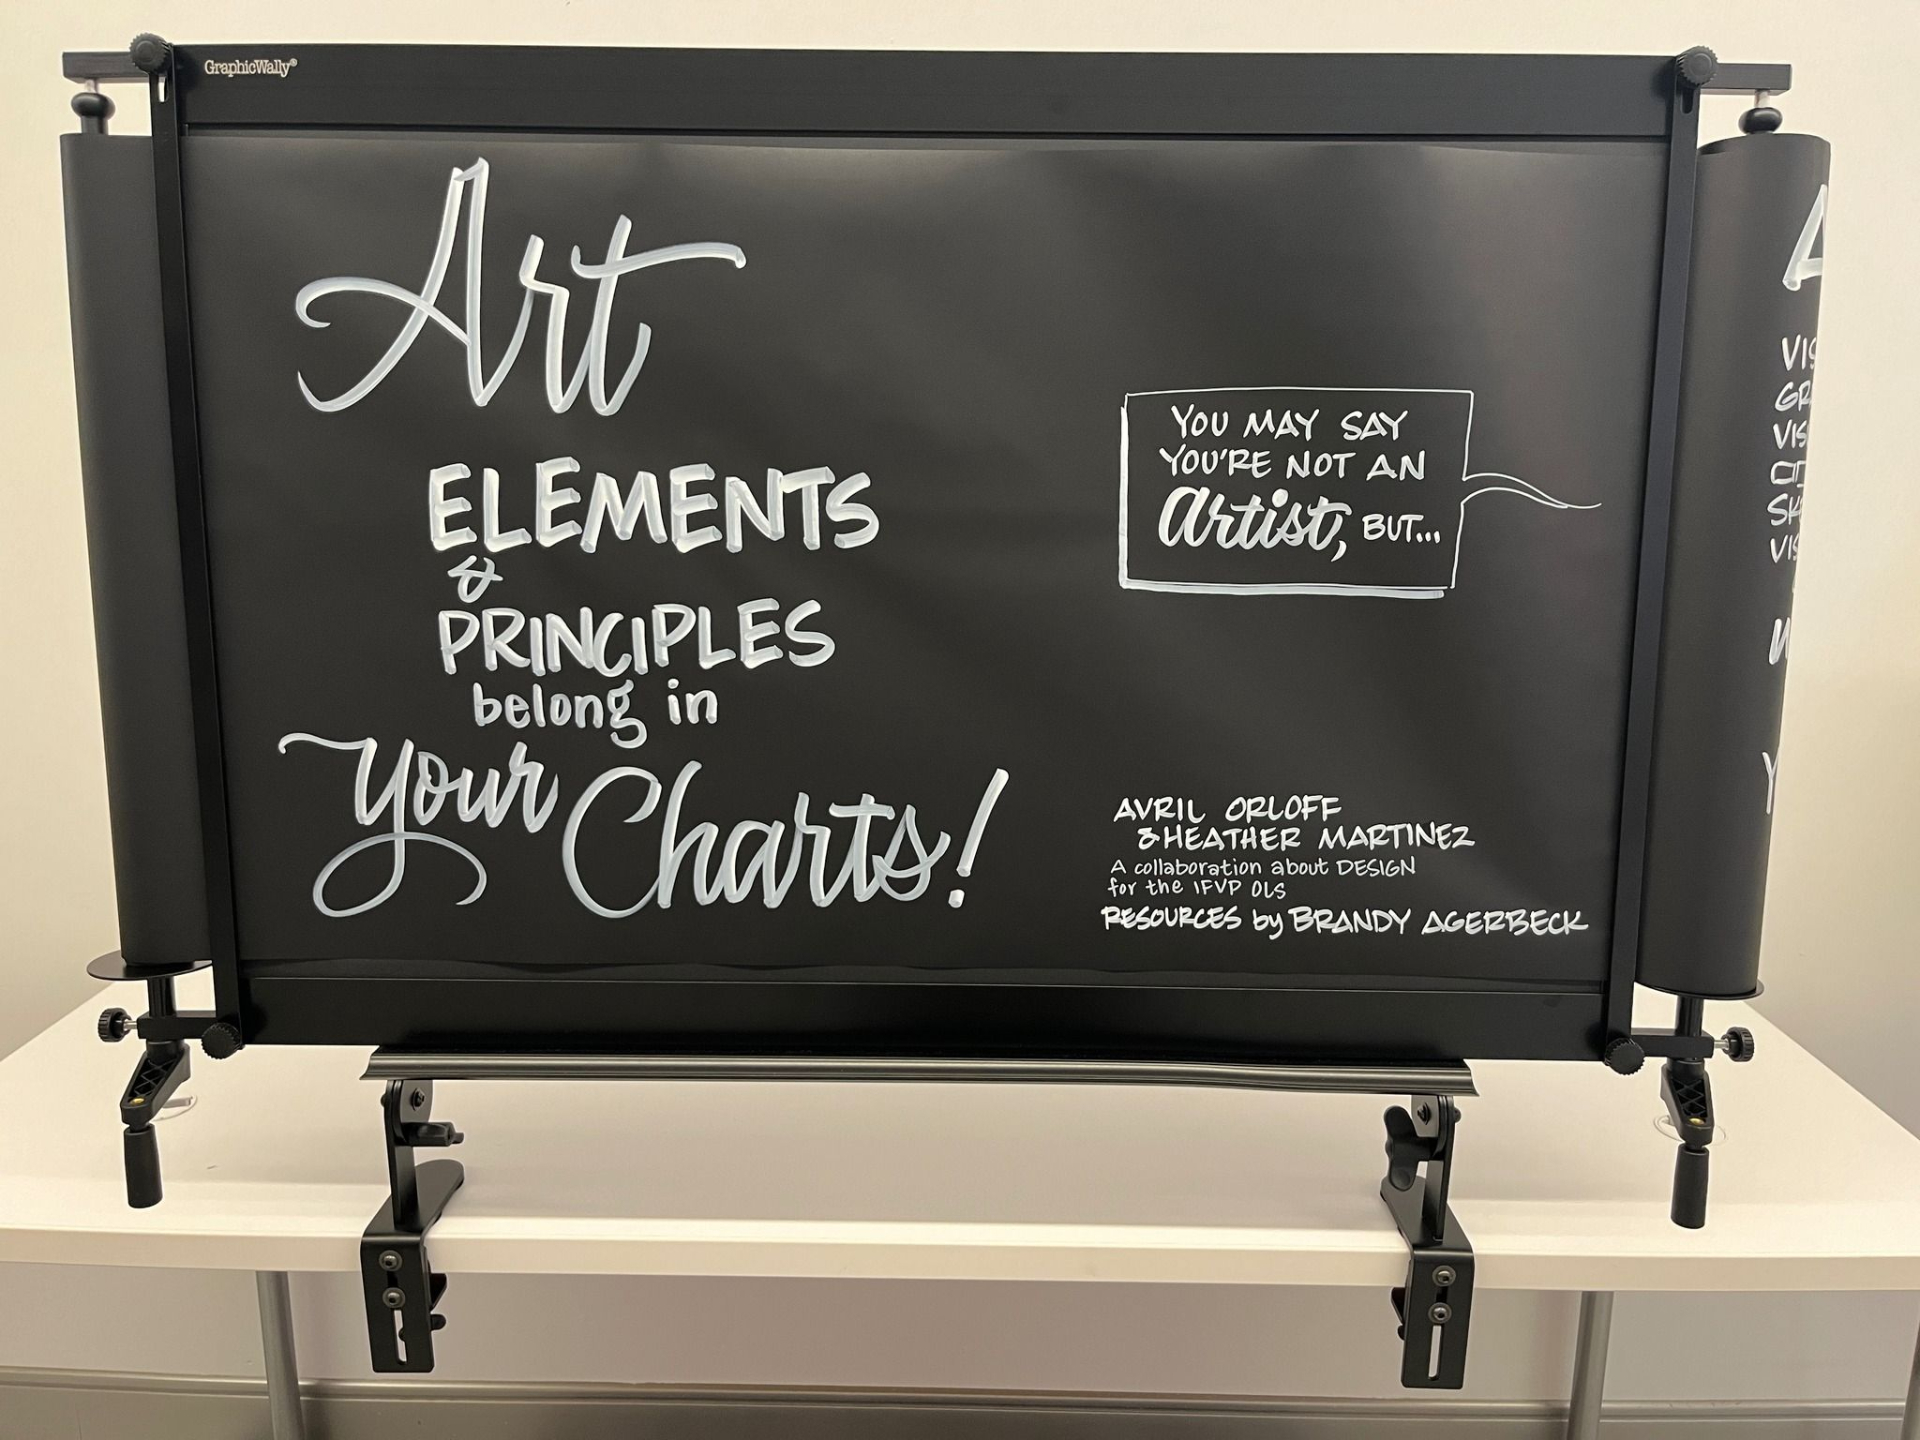 GraphicWally®
Art
ELEMENTS
&
PRINCIPLES
belong in
Your Charts!
YOU MAY SAY
YOU'RE NOT AN
Artist, BUT...
AVRIL ORLOFF
& HEATHER MARTINEZ
A collaboration about DESIGN
for the IFVP OLS
RESOURCES by BRANDY AGERBECK